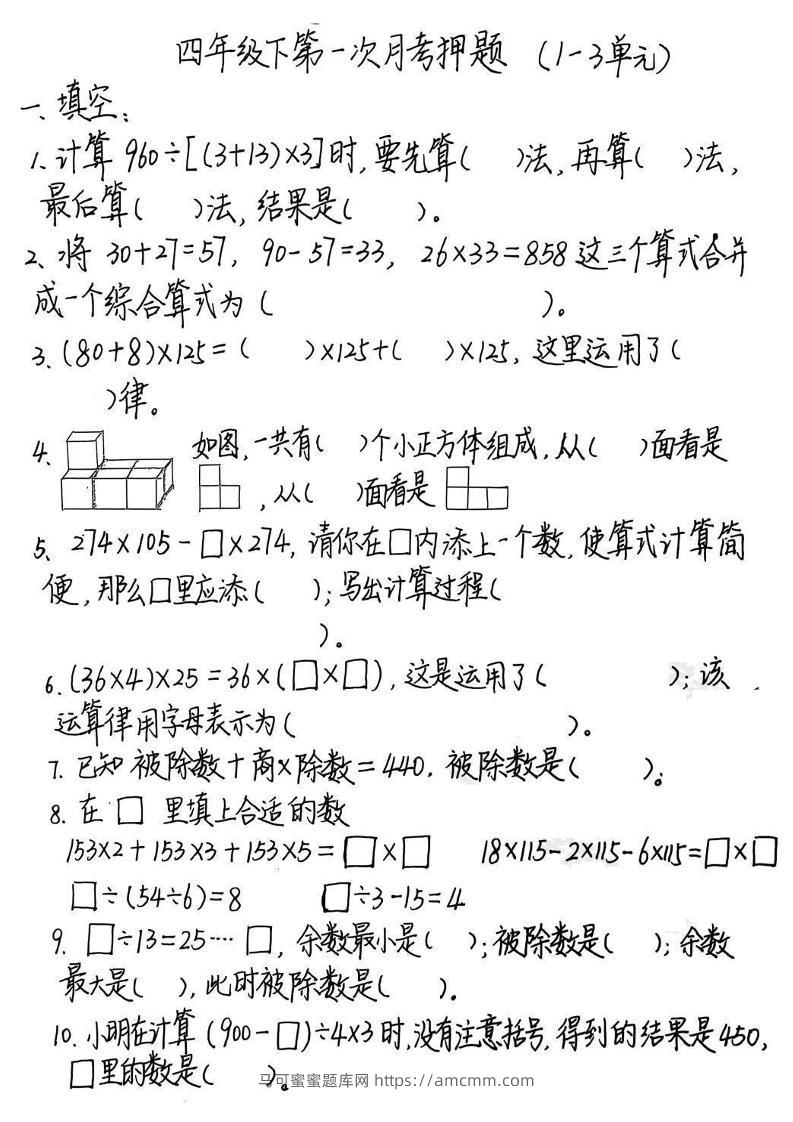 四年级下第一次月考押题 (1-3单元)
一、填空:
1、计算 960÷[(3+13)×3]时,要先算( )法,再算( )法,
最后算( )法,结果是( )。
2、将 30+27=57, 90-57=33, 26×33=858 这三个算式合并
成一个综合算式为( )。
3、(80+8)×125=( )×125+( )×125, 这里运用了(
)律。
4、如图,一共有( )个小正方体组成,从( )面看是
,从( )面看是
5、274×105-□×274, 请你在□内添上一个数,使算式计算简
便,那么□里应添( ); 写出计算过程(
)。
6.(36×4)×25=36×(□×□), 这是运用了( ); 该
运算律用字母表示为( )。
7. 已知 被除数+商×除数=440, 被除数是( )。
8. 在 □ 里填上合适的数
153×2+153×3+153×5=□×□ 18×115-2×115-6×115=□×□
□÷(54÷6)=8 □÷3-15=4
9. □÷13=25····□, 余数最小是( ); 被除数是( ); 余数
最大是( ), 此时被除数是( )。
10. 小明在计算 (900-□)÷4×3 时,没有注意括号,得到的结果是450,
□里的数是( )。
马可蜜蜜题库网 https://amcmm.com